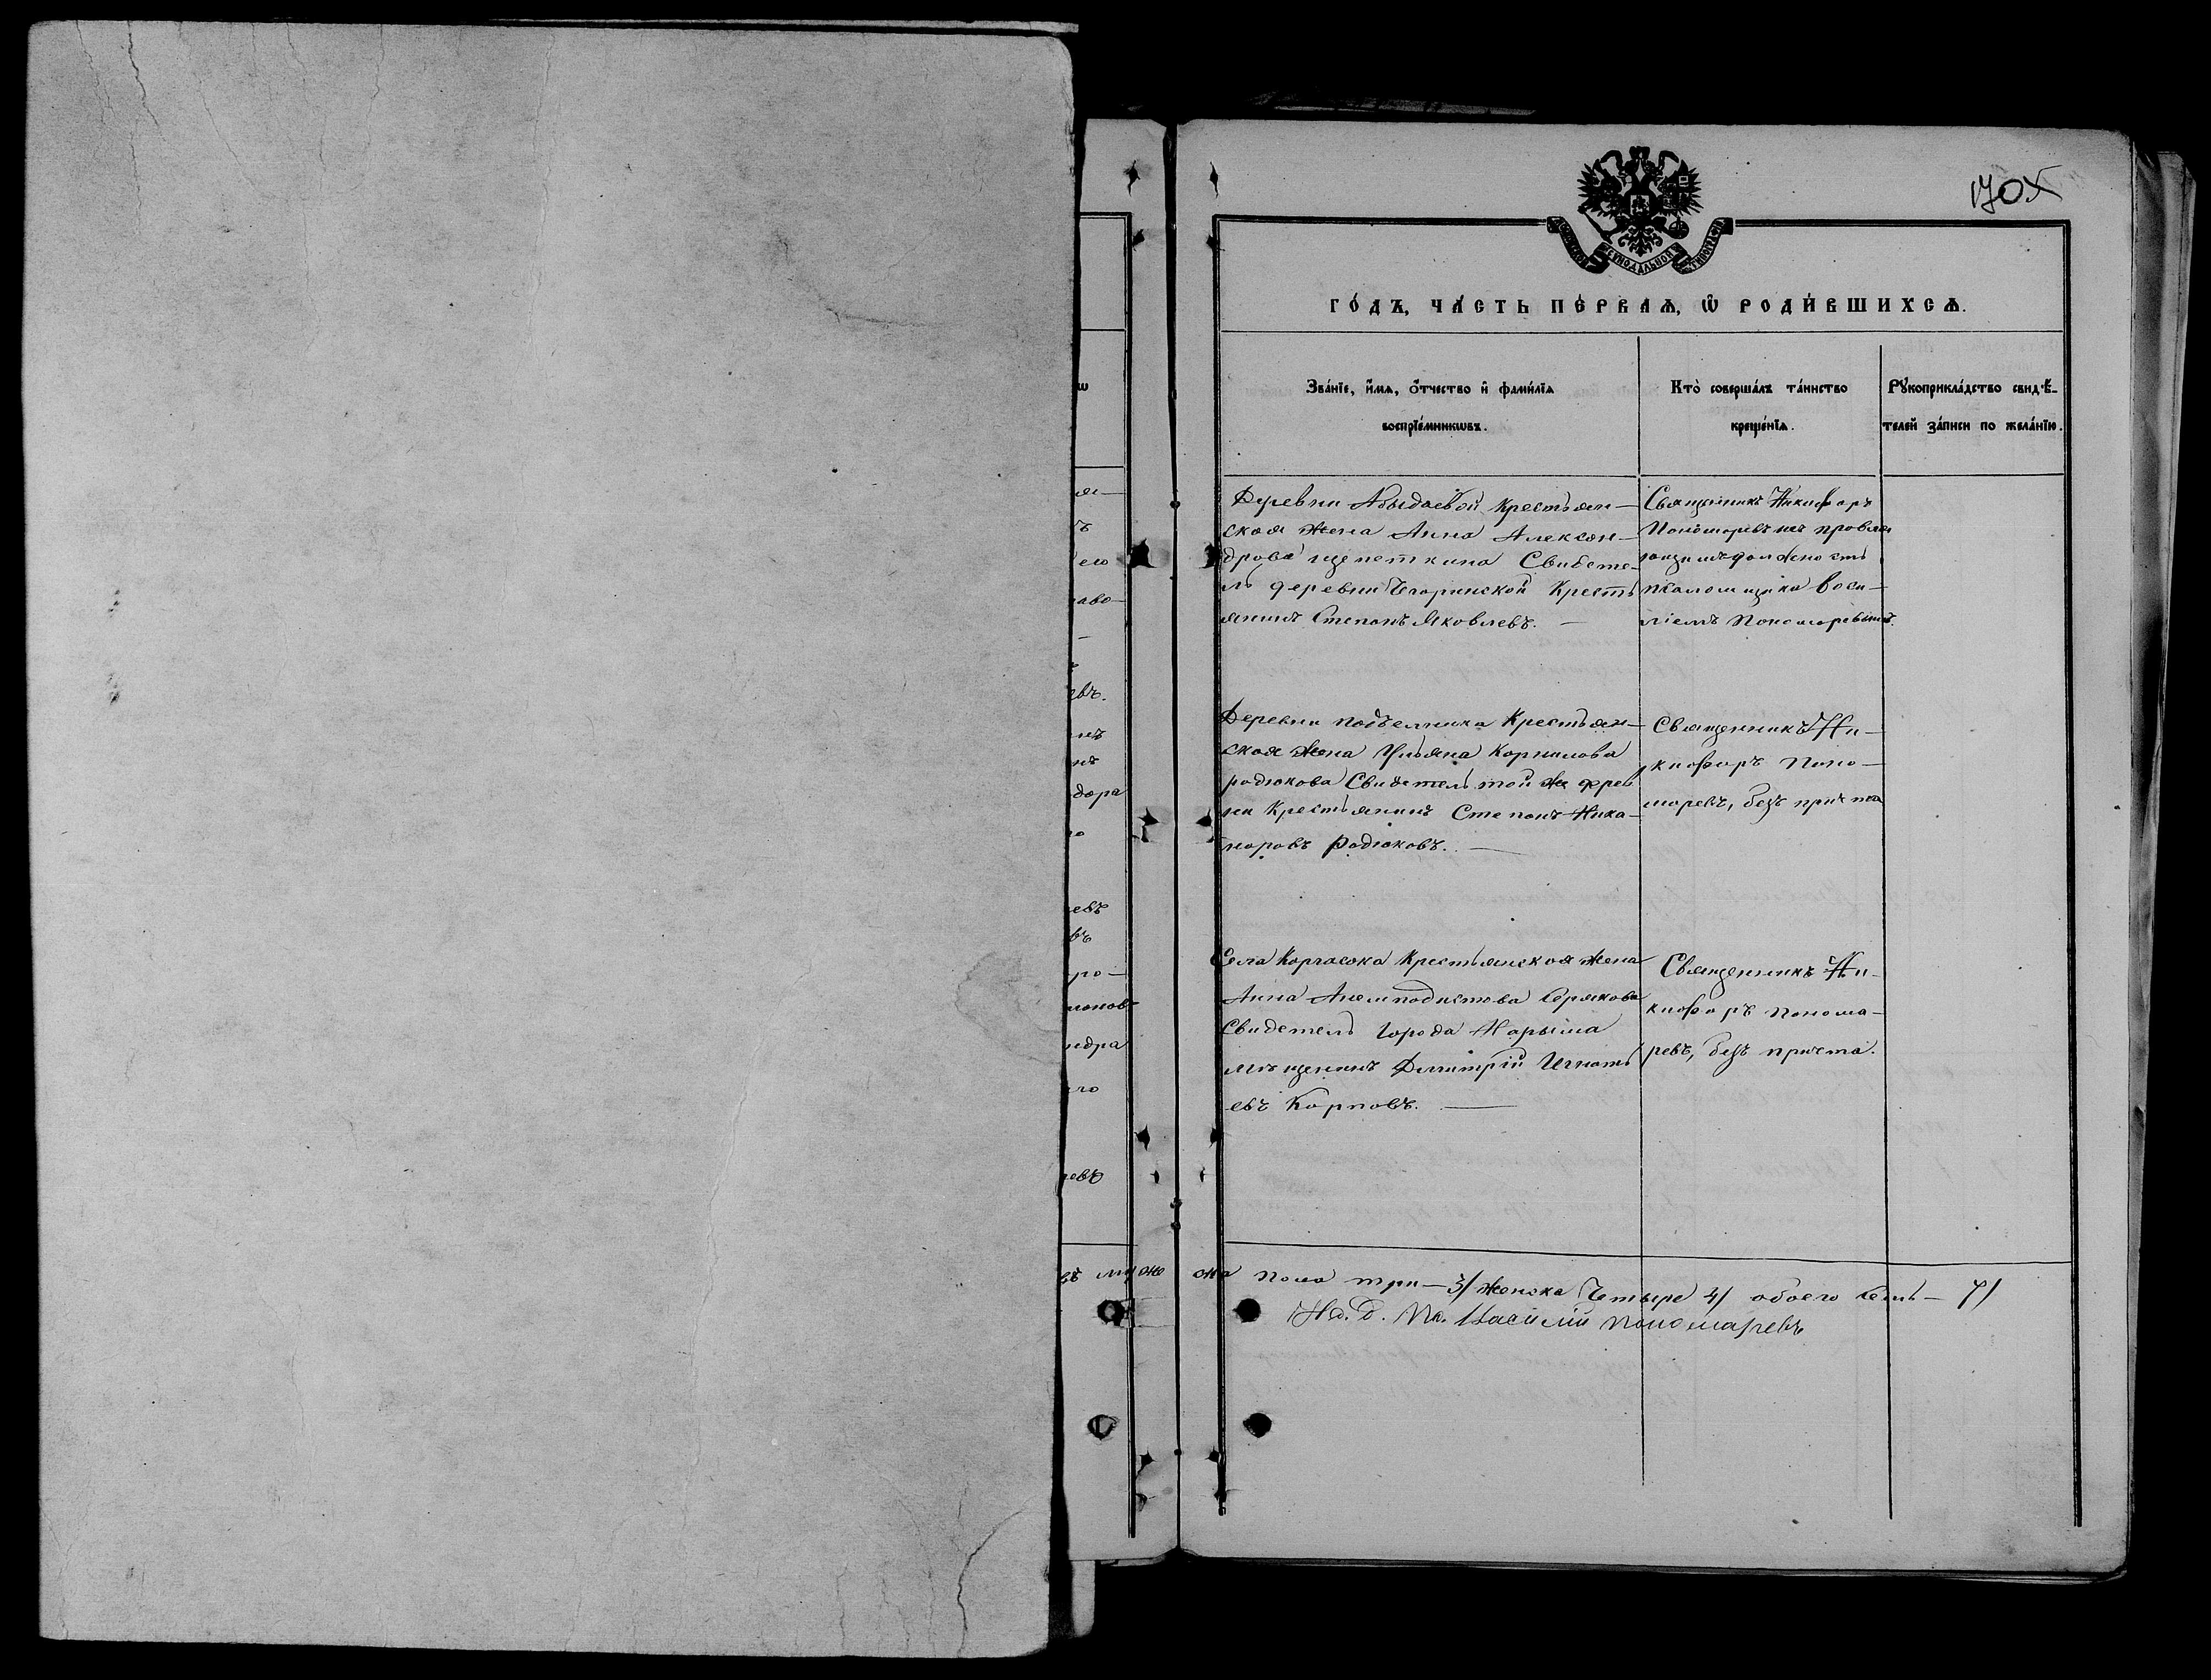 170
ГО́ДЪ, ЧА́СТЬ ПЕ́РВАѦ, Ѡ҆ РОДИ́ВШИХСѦ.
Зва́нїе, и҆́мѧ, ѻ҆́тчество и҆ фами́лїѧ
воспрїе́мникѡвъ.
Кто̀ соверша́лъ та́инство
креще́нїѧ.
Рꙋкоприкла́дство свидѣ́-
телей за́писи по жела́нїю.
Деревни крестьян-
ская жена Анна Алексан-
дрова щепеткина Свидете-
ль деревни Игоринской Кресть
янинъ Степанъ Яковлевъ. —
Священникъ Никифоръ
Пономаревъ
должность
псаломщика Васи-
лiемъ Пономаревымъ.
Деревни Подъельника Крестьян-
ская жена Ульяна Корнилова
родюкова Свидетель той же дерев
ни Крестьянинъ Степанъ Ника-
норовъ Родюковъ. —
Священникъ Ни-
кифоръ Поно-
маревъ, безъ причта
Села Каргасока Крестьянская жена
Анна Анемподистова Серякова
Свидетель Города Нарыма
мѣщанинъ Димитрiй Игнать
евъ Карповъ. —
Священникъ Ни-
кифоръ Понома-
ревъ, безъ причта.
муж ска пола три — 3/ женска Четыре 4/ обоего семь — 7/
И. д. Пс. Василiй Пономаревъ